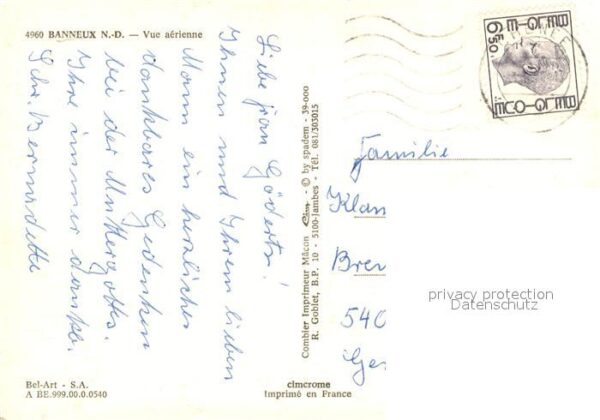 4960 BANNEUX N.-D. — Vue aérienne
Liebe frau Göderts!
Ihnen und Ihrem lieben
Mann ein herzliches
dankbares Gedenken
bei der Muttergottes.
Ihre immer dankb.
Schr. Bernadette
Bel-Art - S.A.
A BE.999.00.0.0540
Combier Imprimeur Mâcon - © by spadem - 39-000
R. Goblet, B.P. 10 - 5100-Jambes - Tél. 081/303015
cimcrome
Imprimé en France
BELGIE-BELGIQUE
6F50
Familie
Klau
Brer
540
privacy protection
Datenschutz